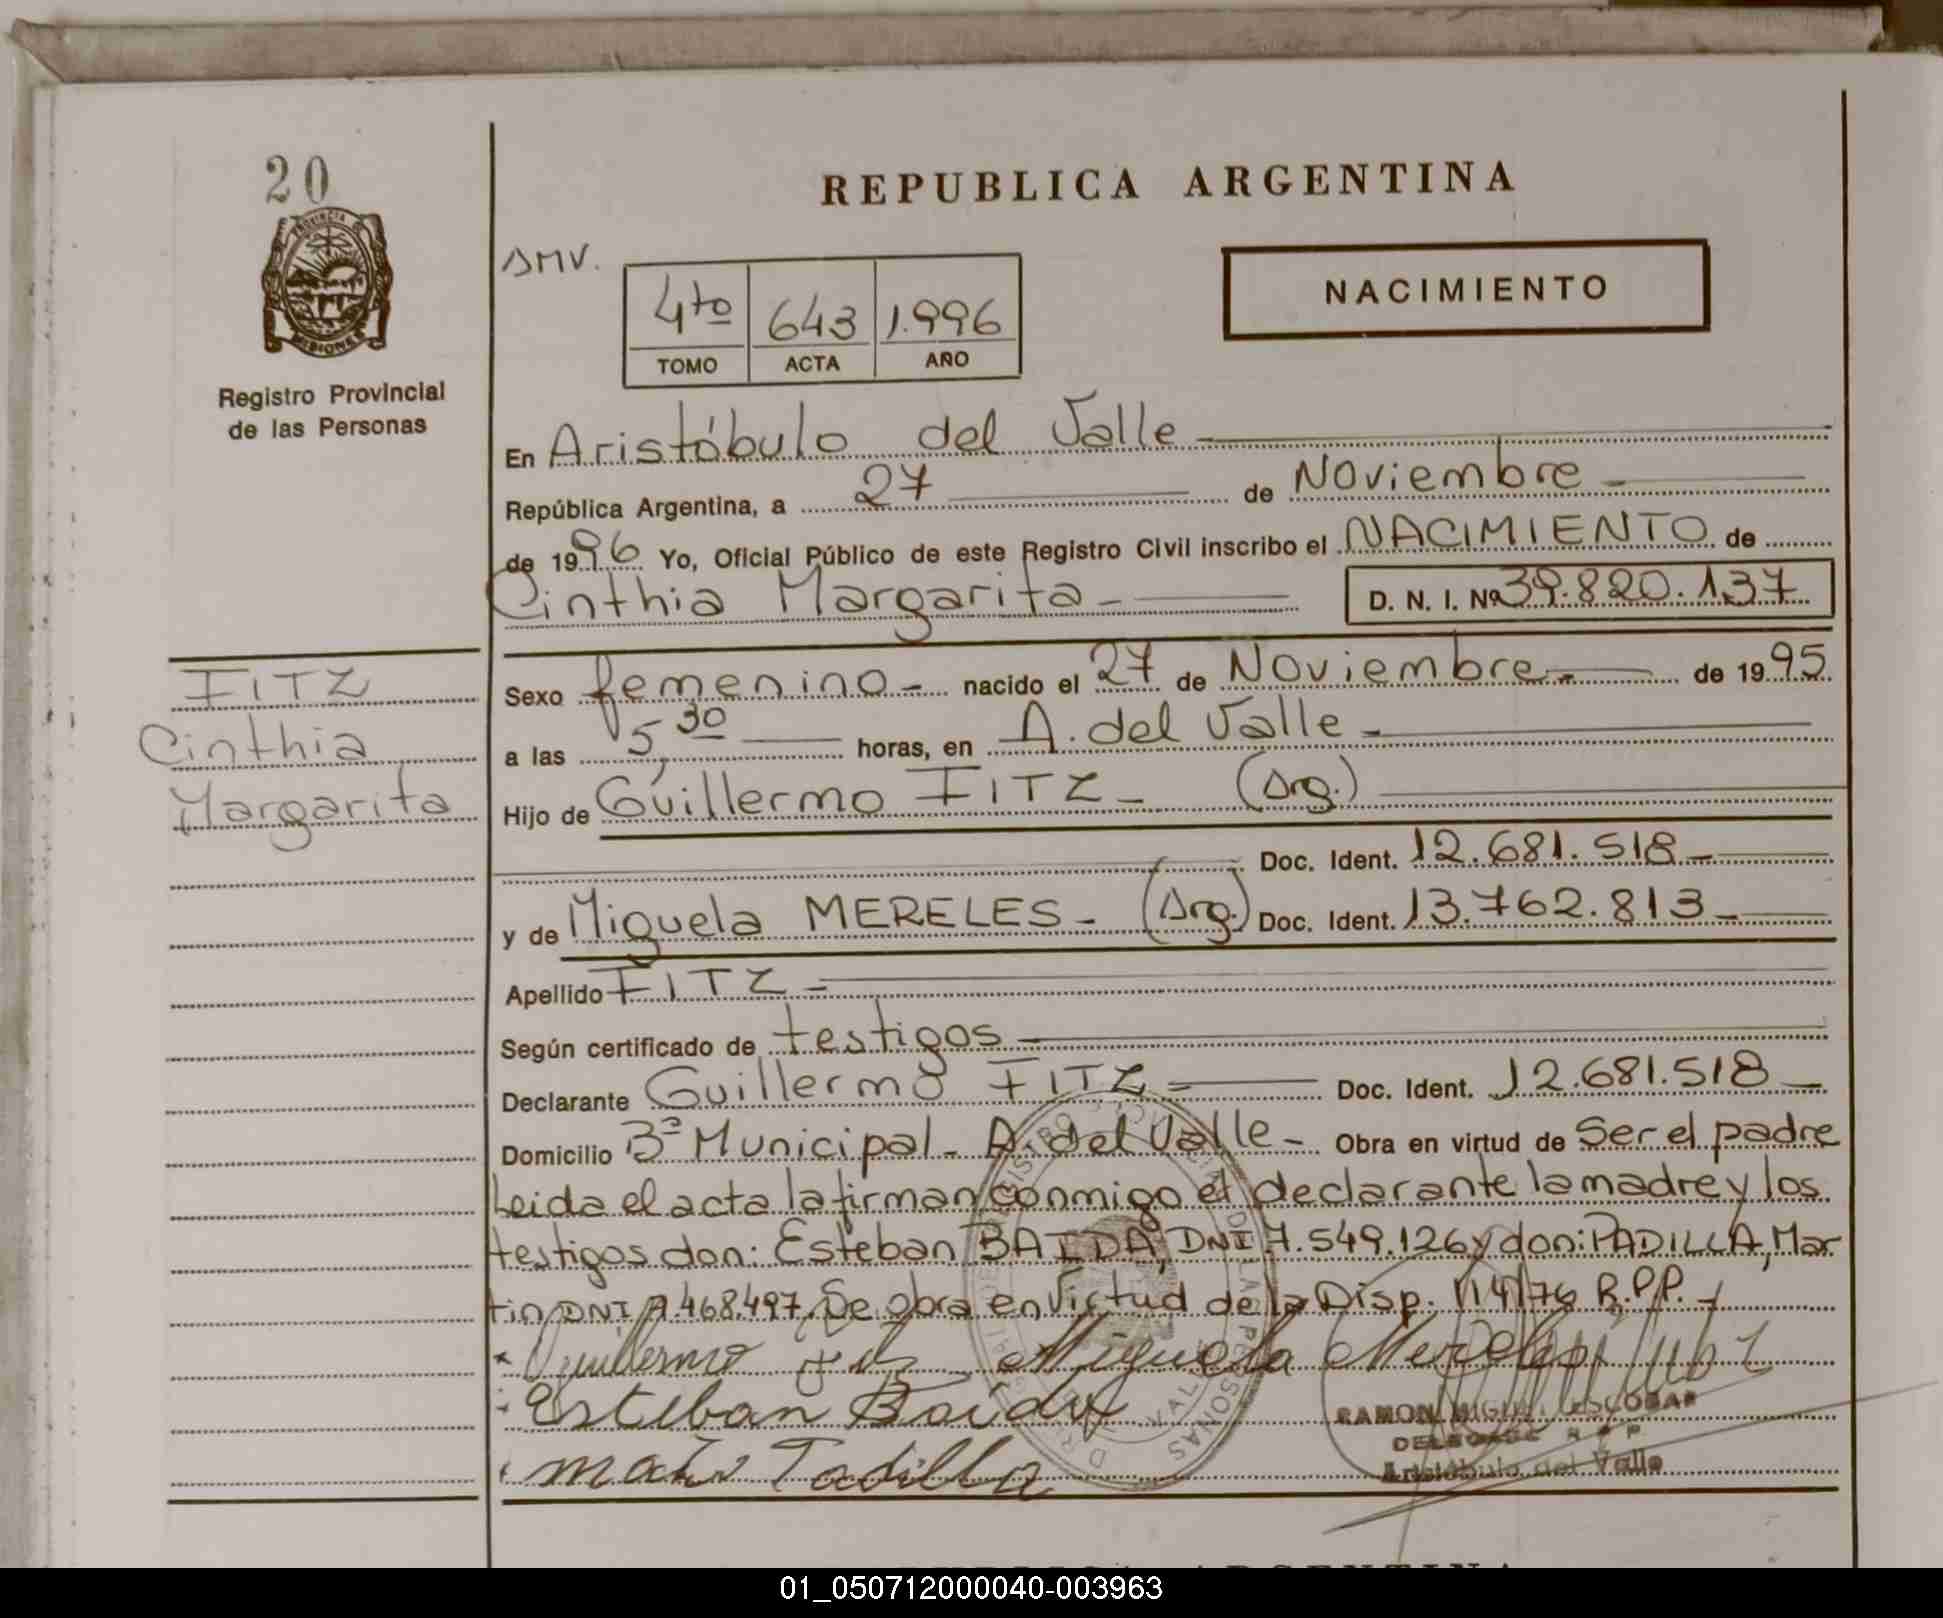 20
REPUBLICA ARGENTINA
PROVINCIA DE
MISIONES
SMV.
4to 643 1.996
TOMO ACTA AÑO
NACIMIENTO
Registro Provincial
de las Personas
En Aristóbulo del Valle
República Argentina, a 27 de Noviembre
de 1996 Yo, Oficial Público de este Registro Civil inscribo el NACIMIENTO de
Cinthia Margarita D. N. I. Nº 39.820.137
FITZ
Cinthia
Margarita
Sexo femenino nacido el 27 de Noviembre de 1995
a las 5,30 horas, en A. del Valle
Hijo de Guillermo FITZ (Arg.)
Doc. Ident. 12.681.518
y de Miguela MERELES (Arg.) Doc. Ident. 13.762.813
Apellido FITZ
Según certificado de testigos
Declarante Guillermo FITZ Doc. Ident. 12.681.518
Domicilio Bº Municipal - A. del Valle Obra en virtud de Ser el padre
Leida el acta la firman conmigo el declarante la madre y los
testigos don: Esteban BAIDA, DNI 7.549.126 y don: PADILLA, Mar
tin DNI 468.497. Se obra en virtud de la Disp. 114/76 R.P.P.
Guillermo Fitz Miguela Mereles
Esteban Baida
Padilla
RAMON MIGUEL ESCOBAR
DELEGADO R P P
Aristóbulo del Valle
REPUBLICA ARGENTINA
01_050712000040-003963